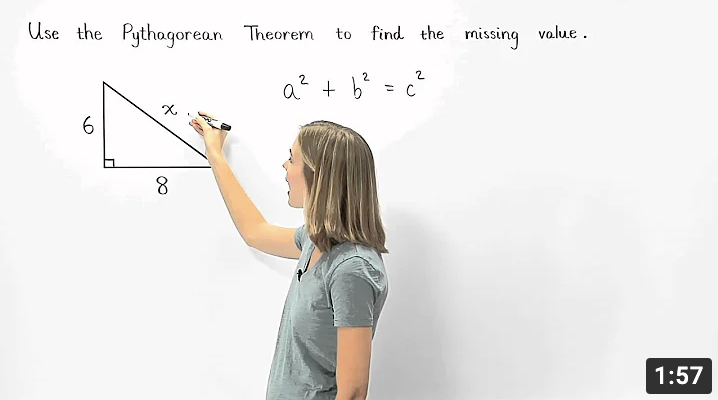 Use the Pythagorean Theorem to find the missing value.
a² + b² = c²
x
6
8
1:57